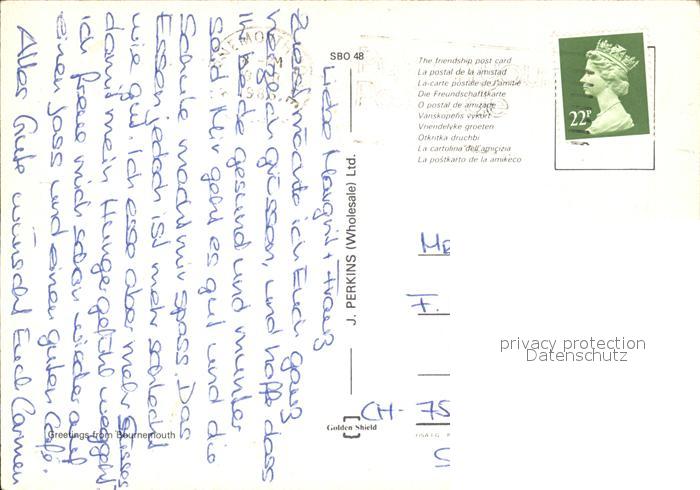 Liebe Margrit + Franz
Zuerst möchte ich Euch ganz
herzlich grüssen, und hoffe dass
Ihr beide gesund und munter
seid. Mir geht es gut und die
Schule macht mir Spass. Das
Essen jedoch ist mehr schlecht
wie gut. Ich esse aber mehr Süsses
damit mein Hungergefühl weggeht.
Ich freue mich schon wieder auf
einen Jass und einen guten Café.
Alles Gute wünscht Euch Carmen
Greetings from Bournemouth
SBO 48
J. PERKINS (Wholesale) Ltd.
Golden Shield
The friendship post card
La postal de la amistad
La-carte postale de l'amitié
Die Freundschaftskarte
O postal de amizade
Vänskapens vykort
Vriendelyke groeten
Otkritka druchbi
La cartolina dell'amicizia
La poŝtkarto de la amikeco
22P
F.
CH - 75
privacy protection
Datenschutz